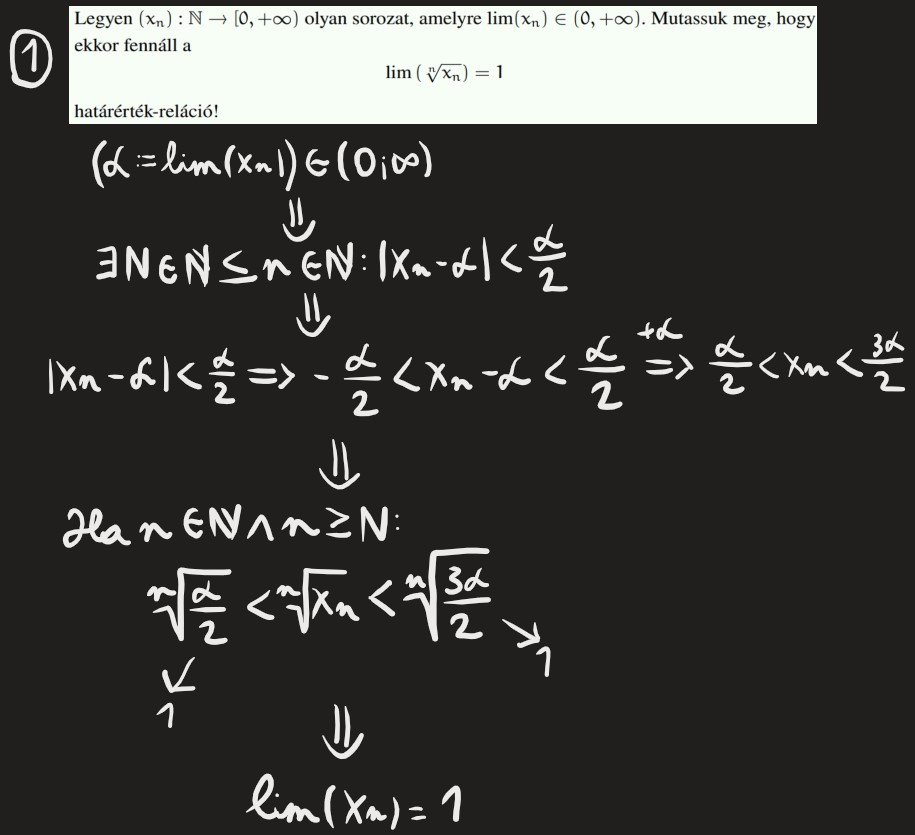 1
Legyen (xₙ) : ℕ → [0, +∞) olyan sorozat, amelyre lim(xₙ) ∈ (0, +∞). Mutassuk meg, hogy
ekkor fennáll a
lim (ⁿ√xₙ) = 1
határérték-reláció!
(α := lim(xₙ)) ∈ (0; ∞)
⇓
∃N∈ℕ ≤ n ∈ℕ: |xₙ-α| < α/2
⇓
|xₙ-α| < α/2 => - α/2 < xₙ-α < α/2 +α => α/2 < xₙ < 3α/2
⇓
Ha n ∈ℕ ∧ n ≥ N:
ⁿ√(α/2) < ⁿ√xₙ < ⁿ√(3α/2)
↙ ↘
1 1
⇓
lim(xₙ) = 1